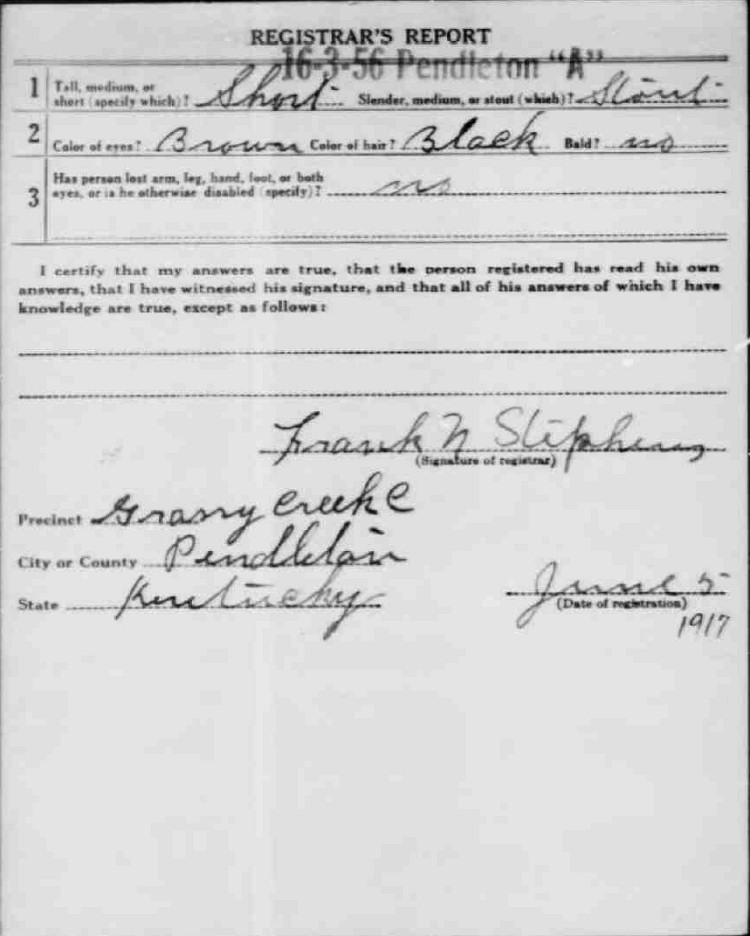 REGISTRAR'S REPORT
16-3-56 Pendleton "A"
1 Tall, medium, or short (specify which)? Short Slender, medium, or stout (which)? Stout
2 Color of eyes? Brown Color of hair? Black Bald? no
3 Has person lost arm, leg, hand, foot, or both
eyes, or is he otherwise disabled (specify)? no
I certify that my answers are true, that the person registered has read his own
answers, that I have witnessed his signature, and that all of his answers of which I have
knowledge are true, except as follows:
Frank N Stephens
(Signature of registrar)
Precinct Grassy Creek C
City or County Pendleton
State Kentucky June 5
(Date of registration)
1917